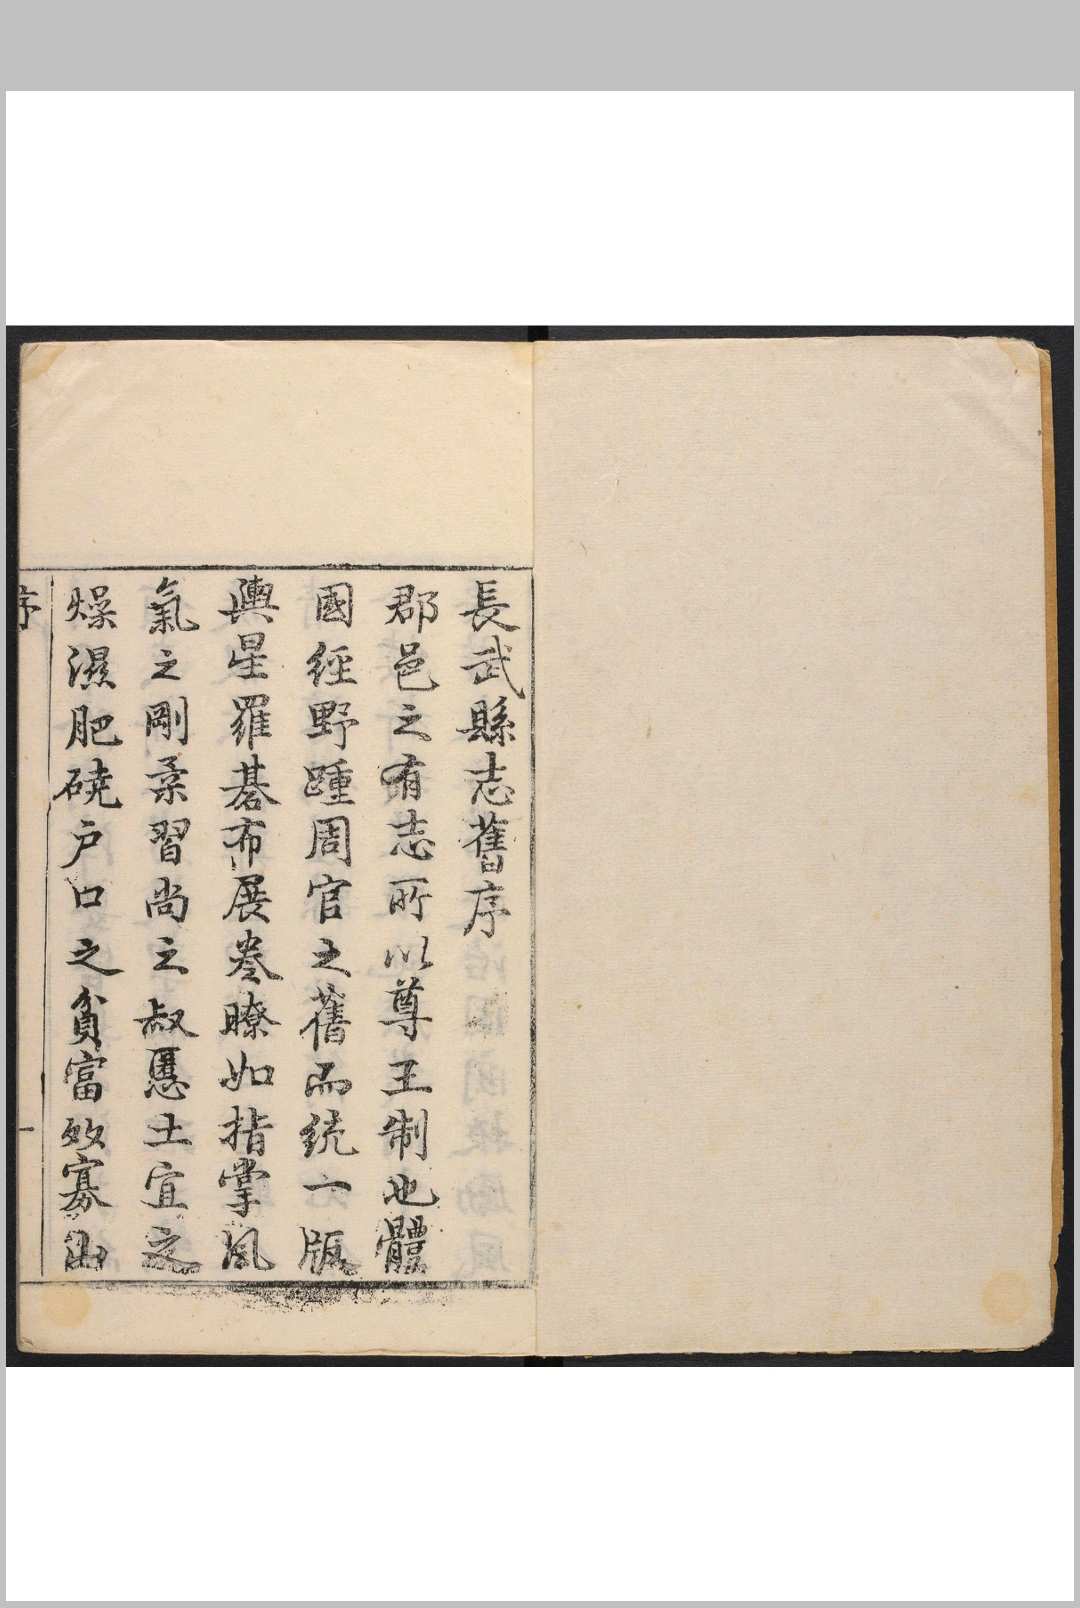 長武縣志舊序
郡邑之有志所以尊王制也體
國經野踵周官之舊而統一版
輿星羅碁布展卷瞭如指掌風
氣之剛柔習尚之叔慝土宜之
燥濕肥磽户口之貧富敀寡山
序
一